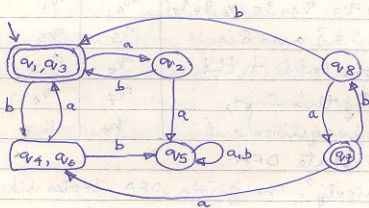 b
q1, q3
a
q2
b
q8
b
a
a
a
b
q4, q6
b
q5
a,b
q7
a